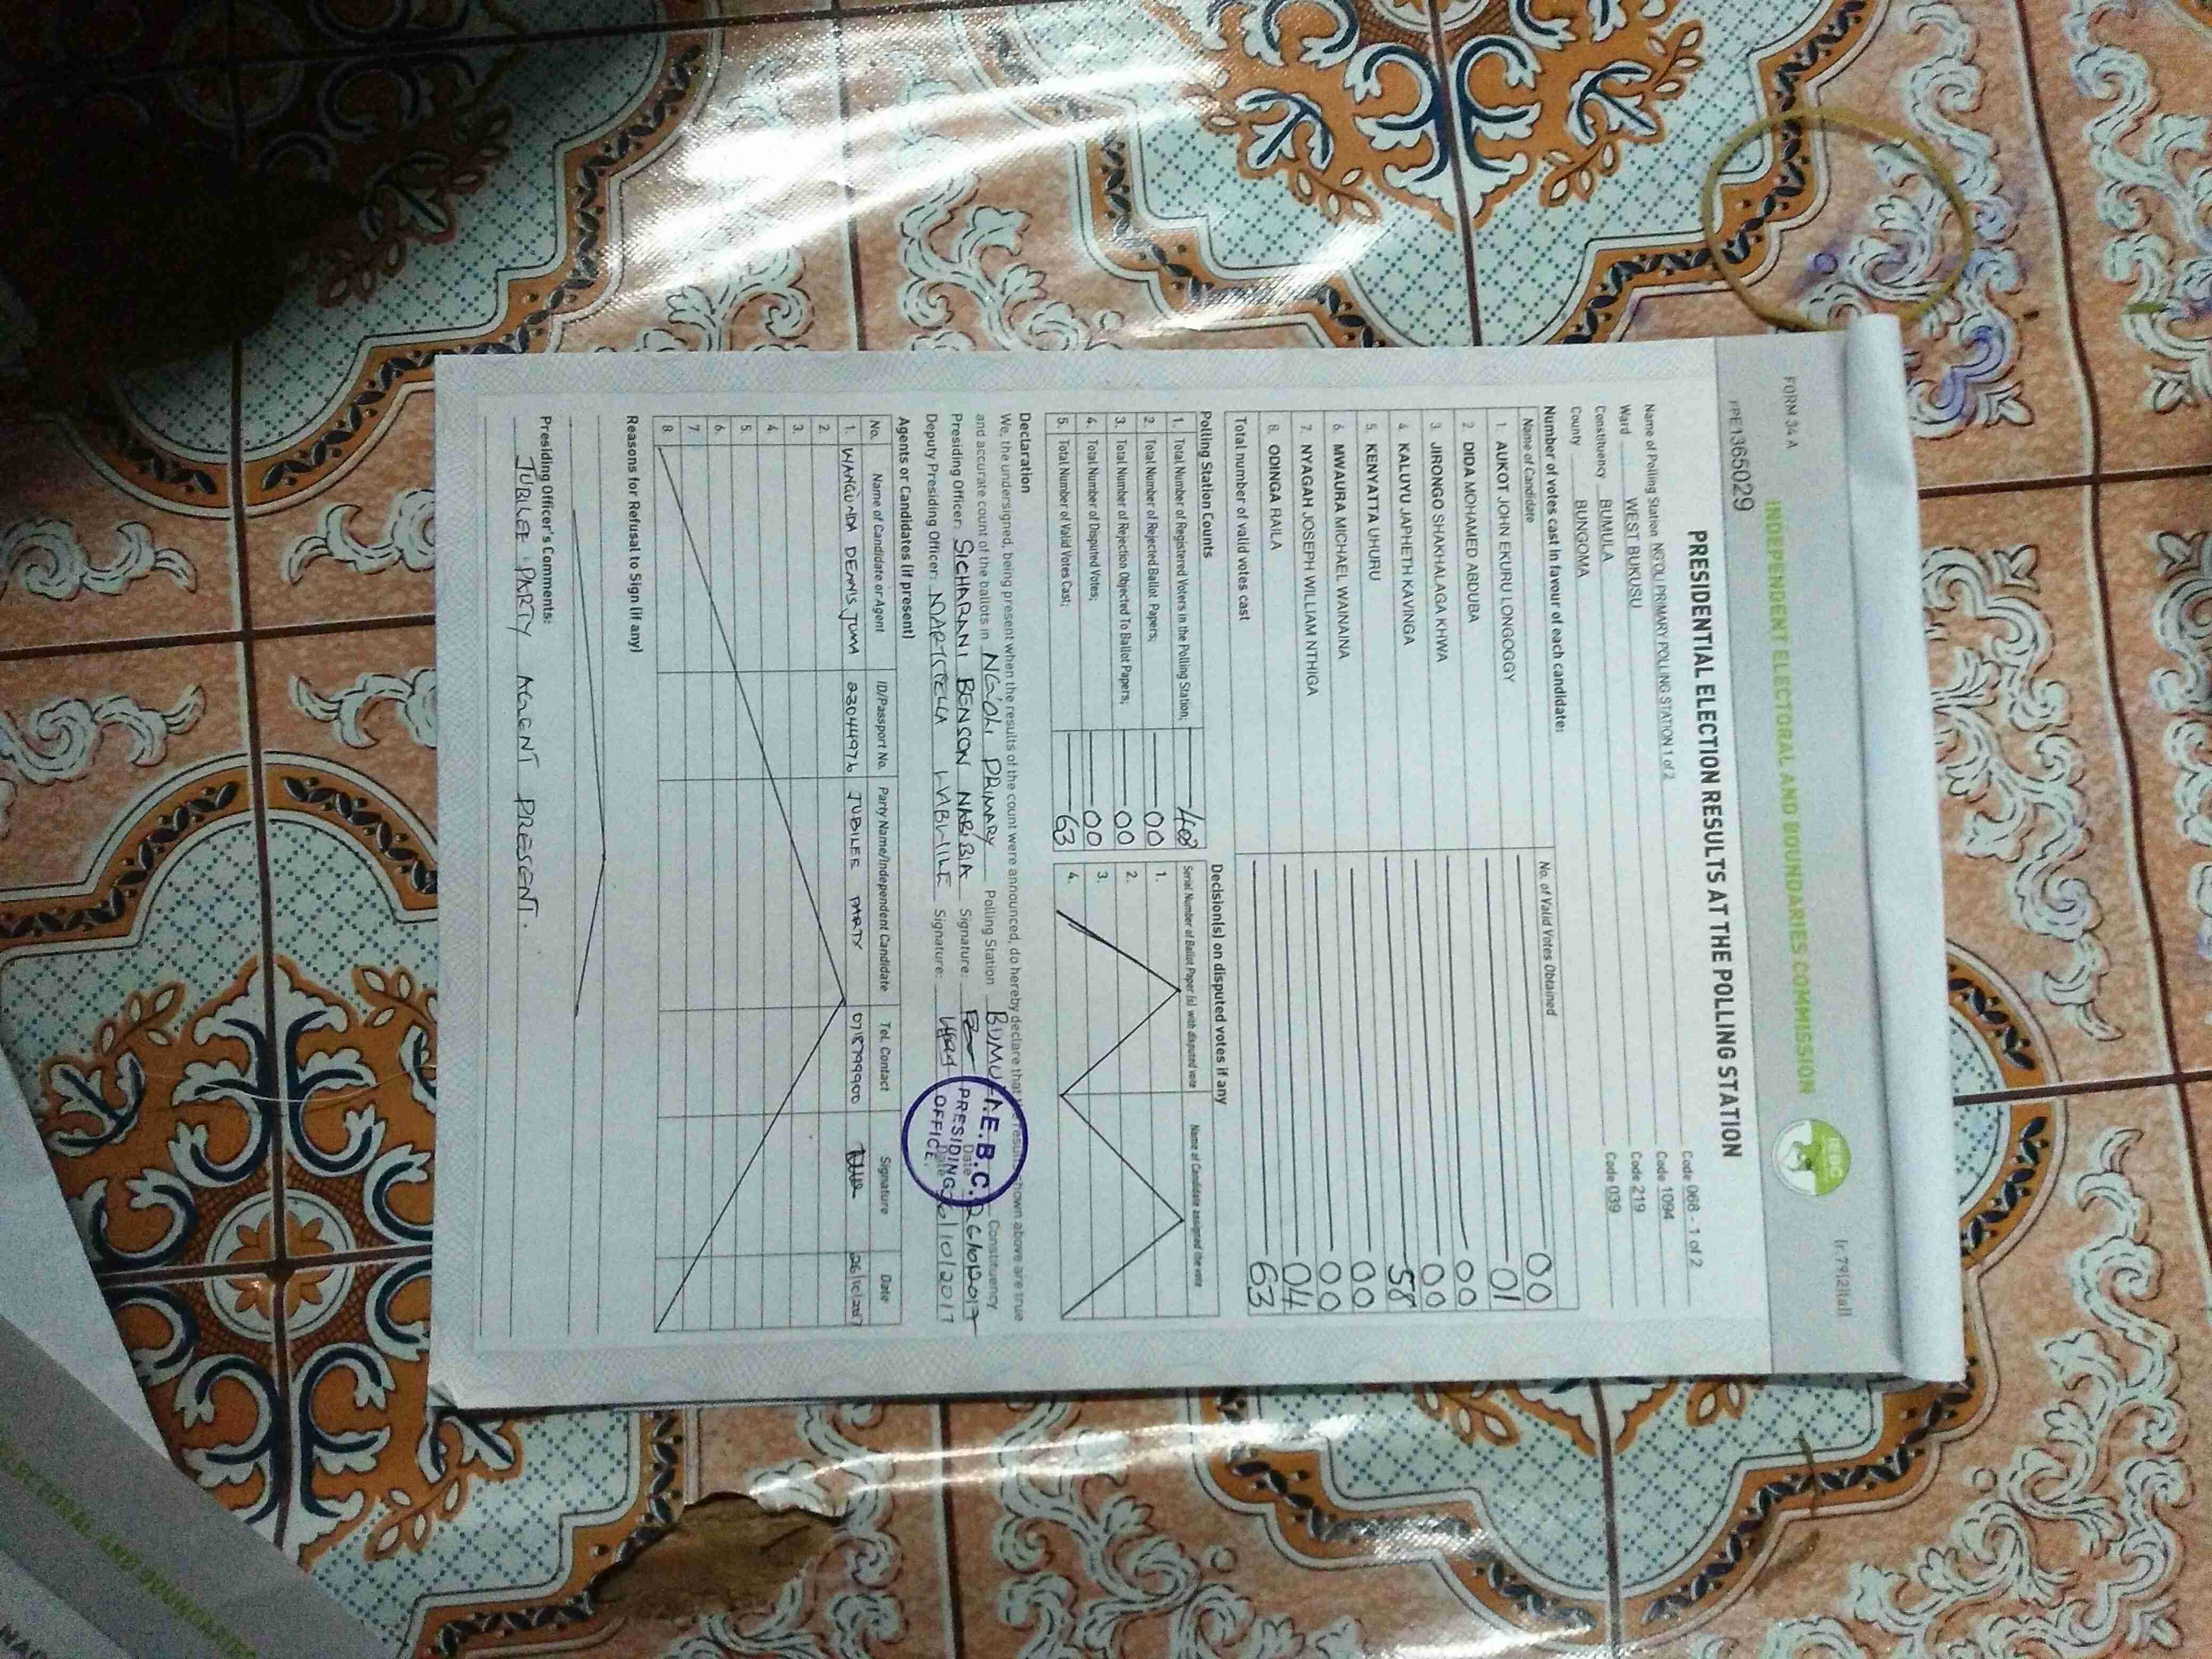 FORM 34 A
(r.79(2)(a))
INDEPENDENT ELECTORAL AND BOUNDARIES COMMISSION
IEBC
PPE1365029
PRESIDENTIAL ELECTION RESULTS AT THE POLLING STATION
Name of Polling Station NG'OLI PRIMARY POLLING STATION 1 of 2 Code 068 - 1 of 2
Ward WEST BUKUSU Code 1094
Constituency BUMULA Code 219
County BUNGOMA Code 039
Number of votes cast in favour of each candidate:
Name of Candidate No. of Valid Votes Obtained
1. AUKOT JOHN EKURU LONGOGGY 00
2. DIDA MOHAMED ABDUBA 01
3. JIRONGO SHAKHALAGA KHWA 00
4. KALUYU JAPHETH KAVINGA 00
5. KENYATTA UHURU 58
6. MWAURA MICHAEL WAINAINA 00
7. NYAGAH JOSEPH WILLIAM NTHIGA 00
8. ODINGA RAILA 04
Total number of valid votes cast 63
Polling Station Counts
1. Total Number of Registered Voters in the Polling Station; 408
2. Total Number of Rejected Ballot Papers; 00
3. Total Number of Rejection Objected To Ballot Papers; 00
4. Total Number of Disputed Votes; 00
5. Total Number of Valid Votes Cast; 63
Decision(s) on disputed votes if any
Serial Number of Ballot Paper (s) with disputed vote Name of Candidate assigned the vote
1.
2.
3.
4.
Declaration
We, the undersigned, being present when the results of the count were announced, do hereby declare that the results shown above are true
and accurate count of the ballots in NG'OLI PRIMARY Polling Station Constituency
Presiding Officer: SICHARANI BENSON NABIBIA Signature: Date
Deputy Presiding Officer: Signature: Date 26/10/2017
I.E.B.C.
PRESIDING
OFFICE.
Agents or Candidates (if present)
No. Name of Candidate or Agent ID/Passport No. Party Name/Independent Candidate Tel. Contact Signature Date
1. WANGUNDA DENNIS JUMA 23044976 JUBILEE PARTY 0718799900 26/10/2017
2.
3.
4.
5.
6.
7.
8.
Reasons for Refusal to Sign (if any)
Presiding Officer's Comments:
JUBLEE PARTY AGENT PRESENT.